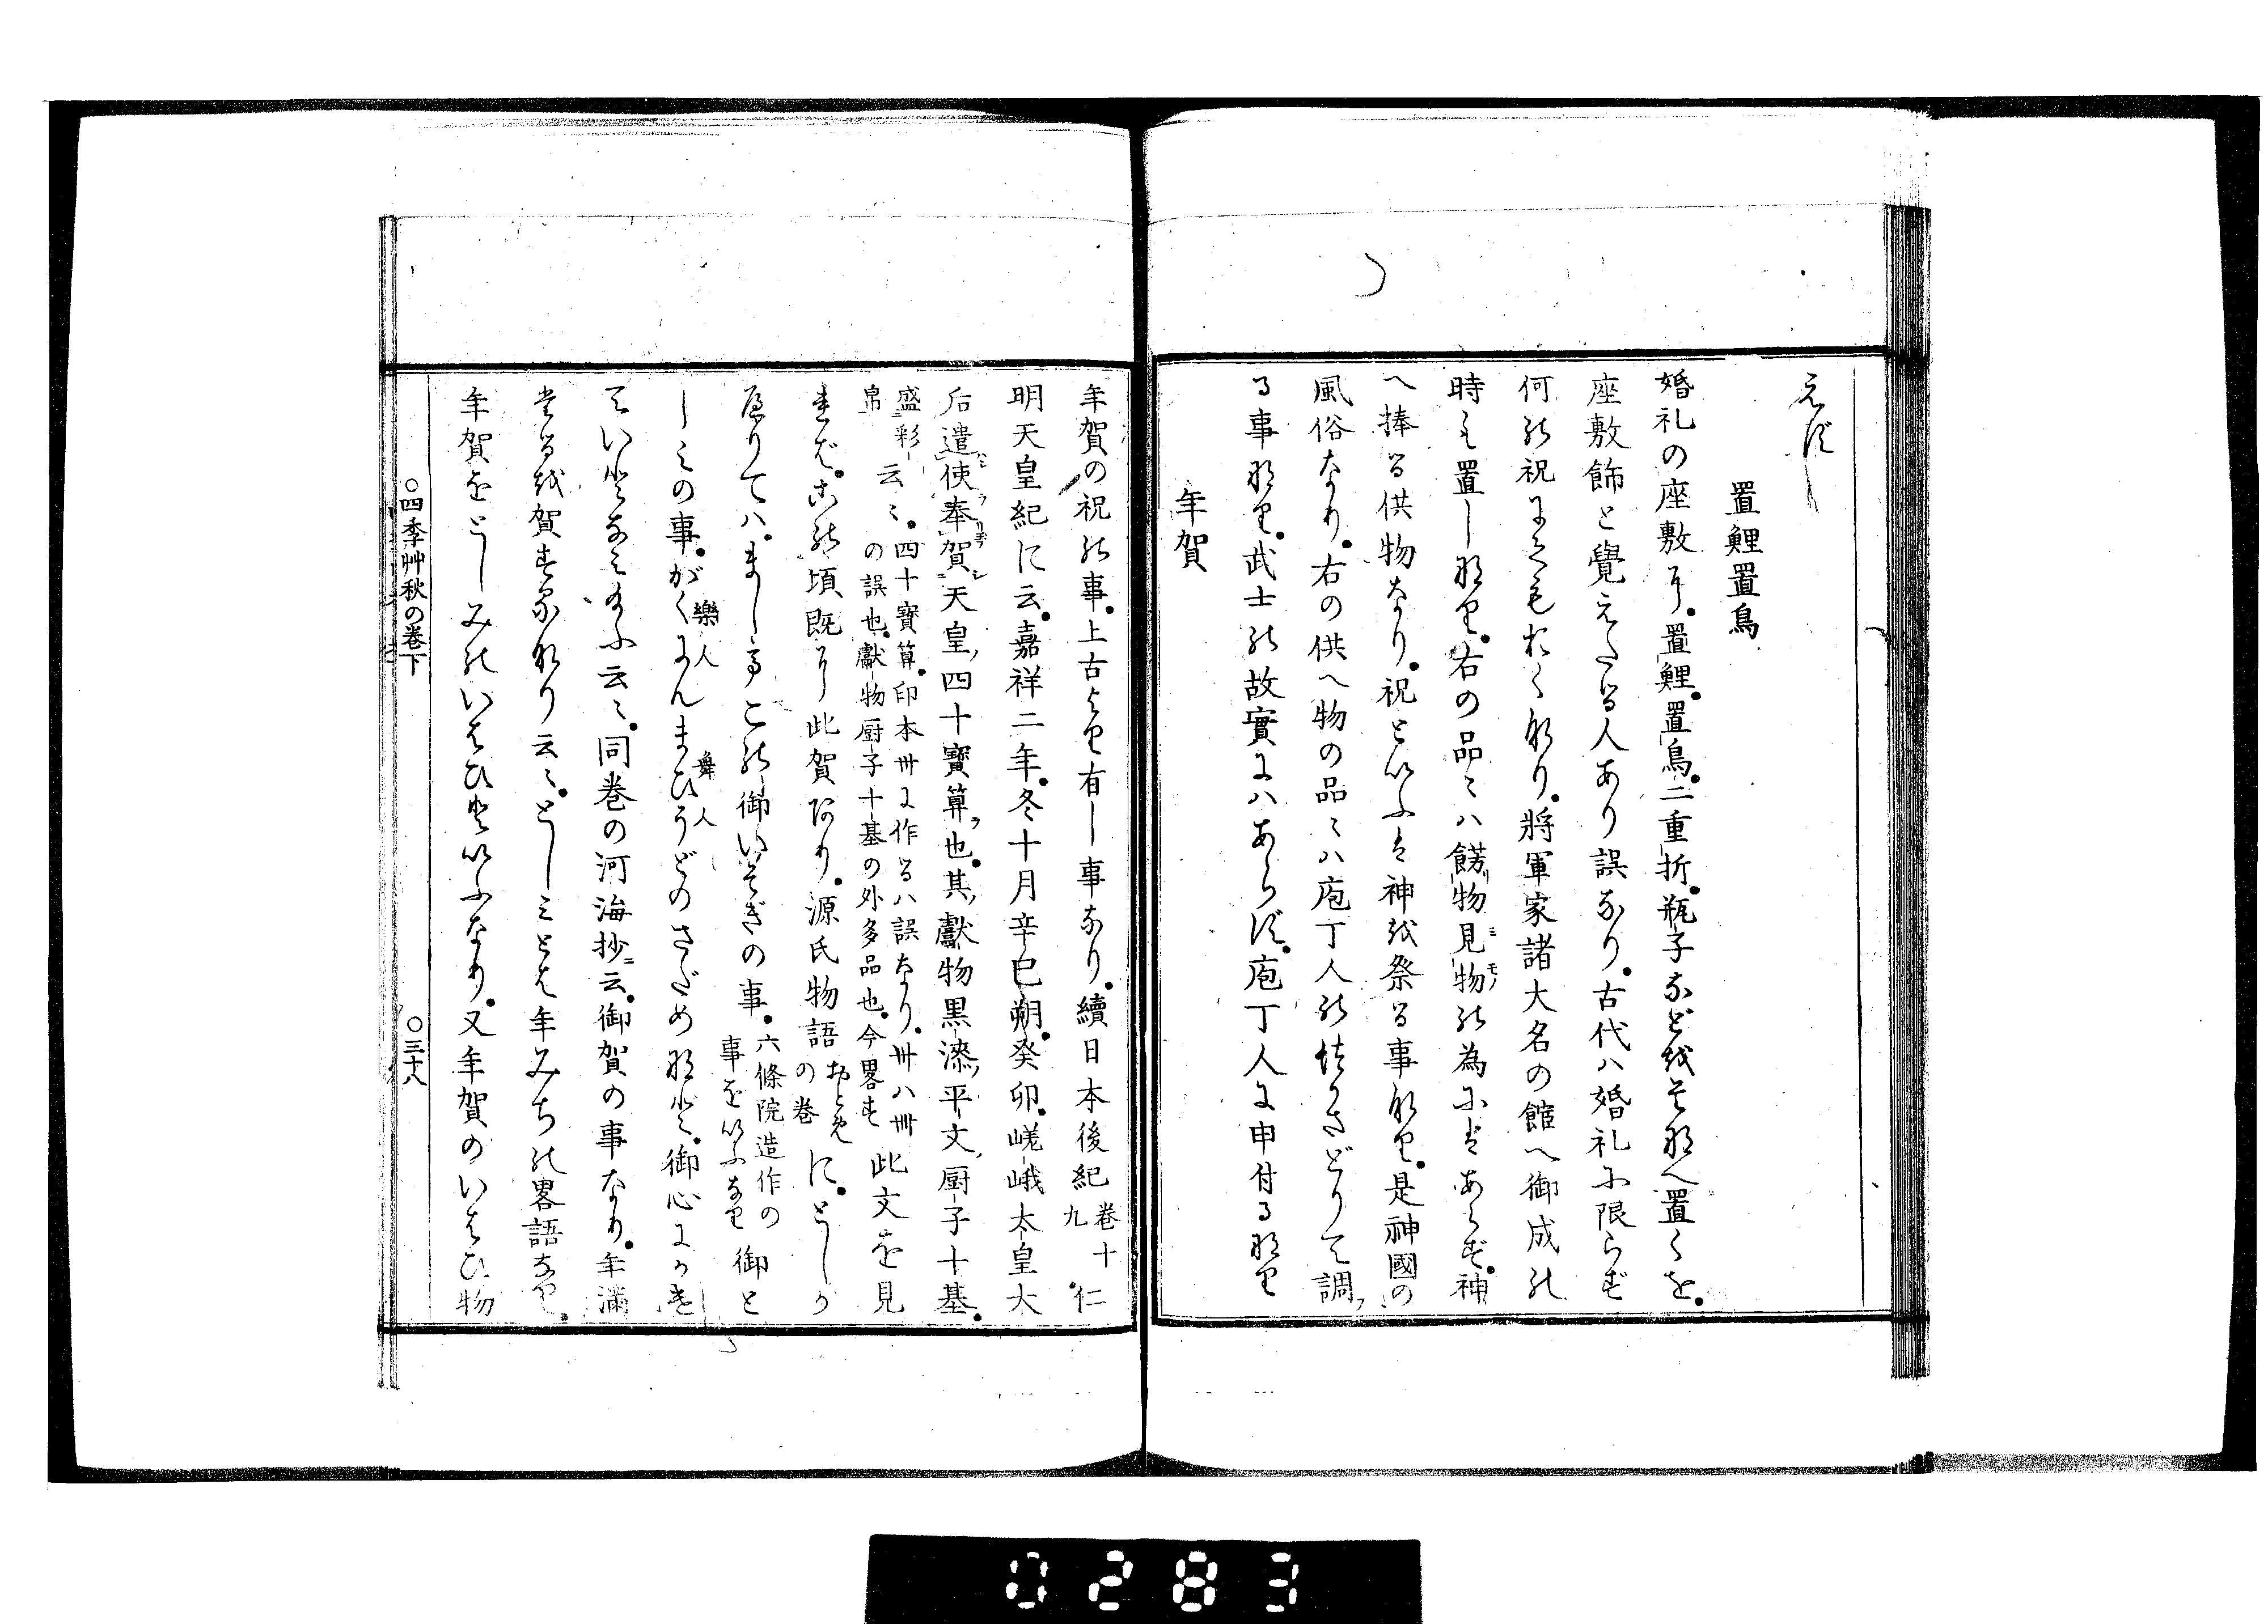 えず
置鯉置鳥
婚礼の座敷に。置鯉。置鳥。二重折。瓶子などをそなへ置くを。
座敷飾と覺えたる人あり誤なり。古代ハ婚礼に限らず
何の祝にても おく なり。將軍家諸大名の館へ御成の
時も置しなり。右の品〻ハ餝物見物の為にはあらず。神
へ捧る供物なり。祝といふは神を祭る事なり。是神國の
風俗なり。右の供へ物の品〻ハ庖丁人のつかさどりて調
る事なり。武士の故實にハあらず。庖丁人に申付るなり
年賀
年賀の祝の事。上古より有し事なり。續日本後紀 卷十九 仁
明天皇紀に云。嘉祥二年。冬十月辛巳朔。癸卯。嵯峨太皇太
后遣使奉賀天皇四十寶算也。其獻物黒漆平文厨子十基。
盛彩帛云〻。四十寶算。印本卅に作るハ誤なり。卅ハ卌の誤也。獻物厨子十基の外多品也。今畧す 此文を見
れば。この頃既に此賀あり。源氏物語 おとめの巻 に。としか
へりてハ。ましてこの御いそぎの事。六條院造作の事をいふなり 御と
しみの事。がくにんまひうどのさだめなど。御心にかけ
樂人 舞人
ていとなみ給ふ云〻。同巻の河海抄ニ云。御賀の事なり。年満
たるを賀する なり云〻。としみとは年みちの畧語なり。
年賀をとしみのいはひといふなり。又年賀のいはひ物
○四季艸秋の巻下 ○三十八
0283